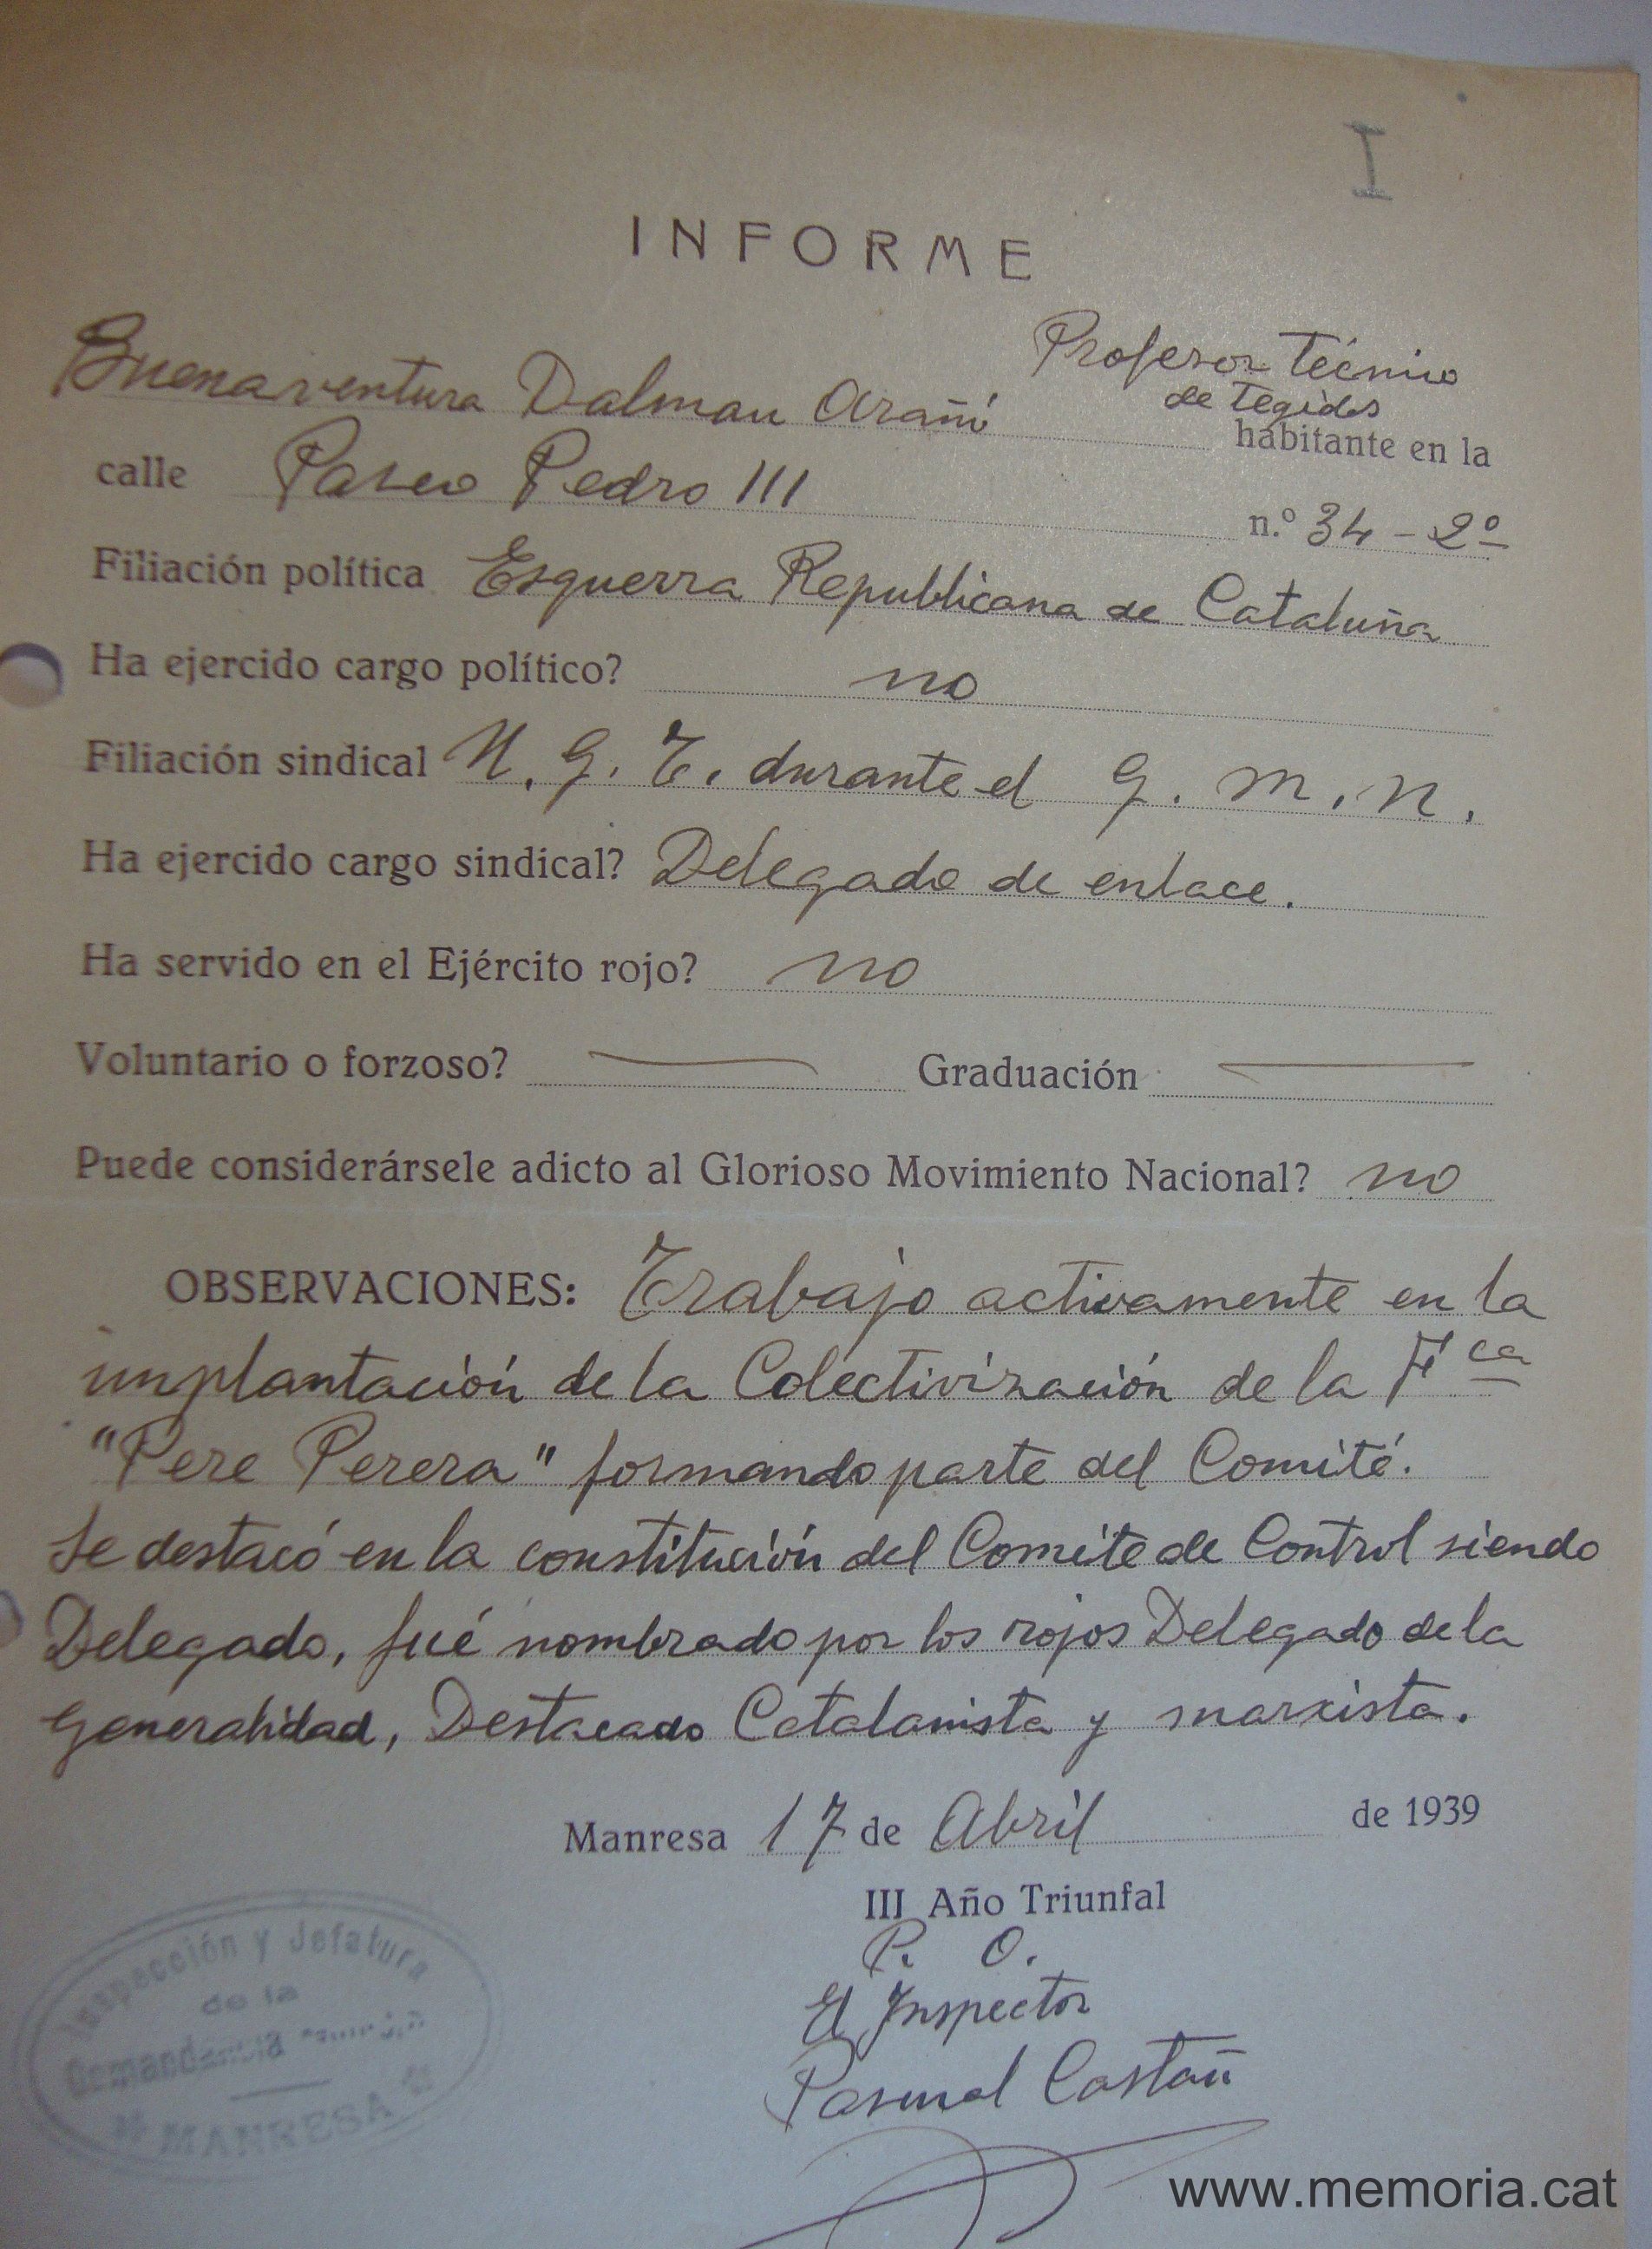 I
INFORME
Profesor Técnico
de Tegidos
Buenaventura Dalmau Arañó
habitante en la
calle Paseo Pedro III n.º 34 - 2º
Filiación política Esquerra Republicana de Cataluña
Ha ejercido cargo político? no
Filiación sindical U. G. T. durante el G. M. N.
Ha ejercido cargo sindical? Delegado de enlace.
Ha servido en el Ejército rojo? no
Voluntario o forzoso? — Graduación —
Puede considerársele adicto al Glorioso Movimiento Nacional? no
OBSERVACIONES: Trabajo activamente en la
implantación de la Colectivización de la Fca
"Pere Perera" formando parte del Comité.
Se destacó en la constitución del Comite de Control siendo
Delegado, fué nombrado por los rojos Delegado de la
Generalidad, Destacado Catalanista y marxista.
Manresa 17 de Abril de 1939
III Año Triunfal
P. O.
El Inspector
Pascual Castañ
Inspección y Jefatura
de la
Comandancia
MANRESA
www.memoria.cat